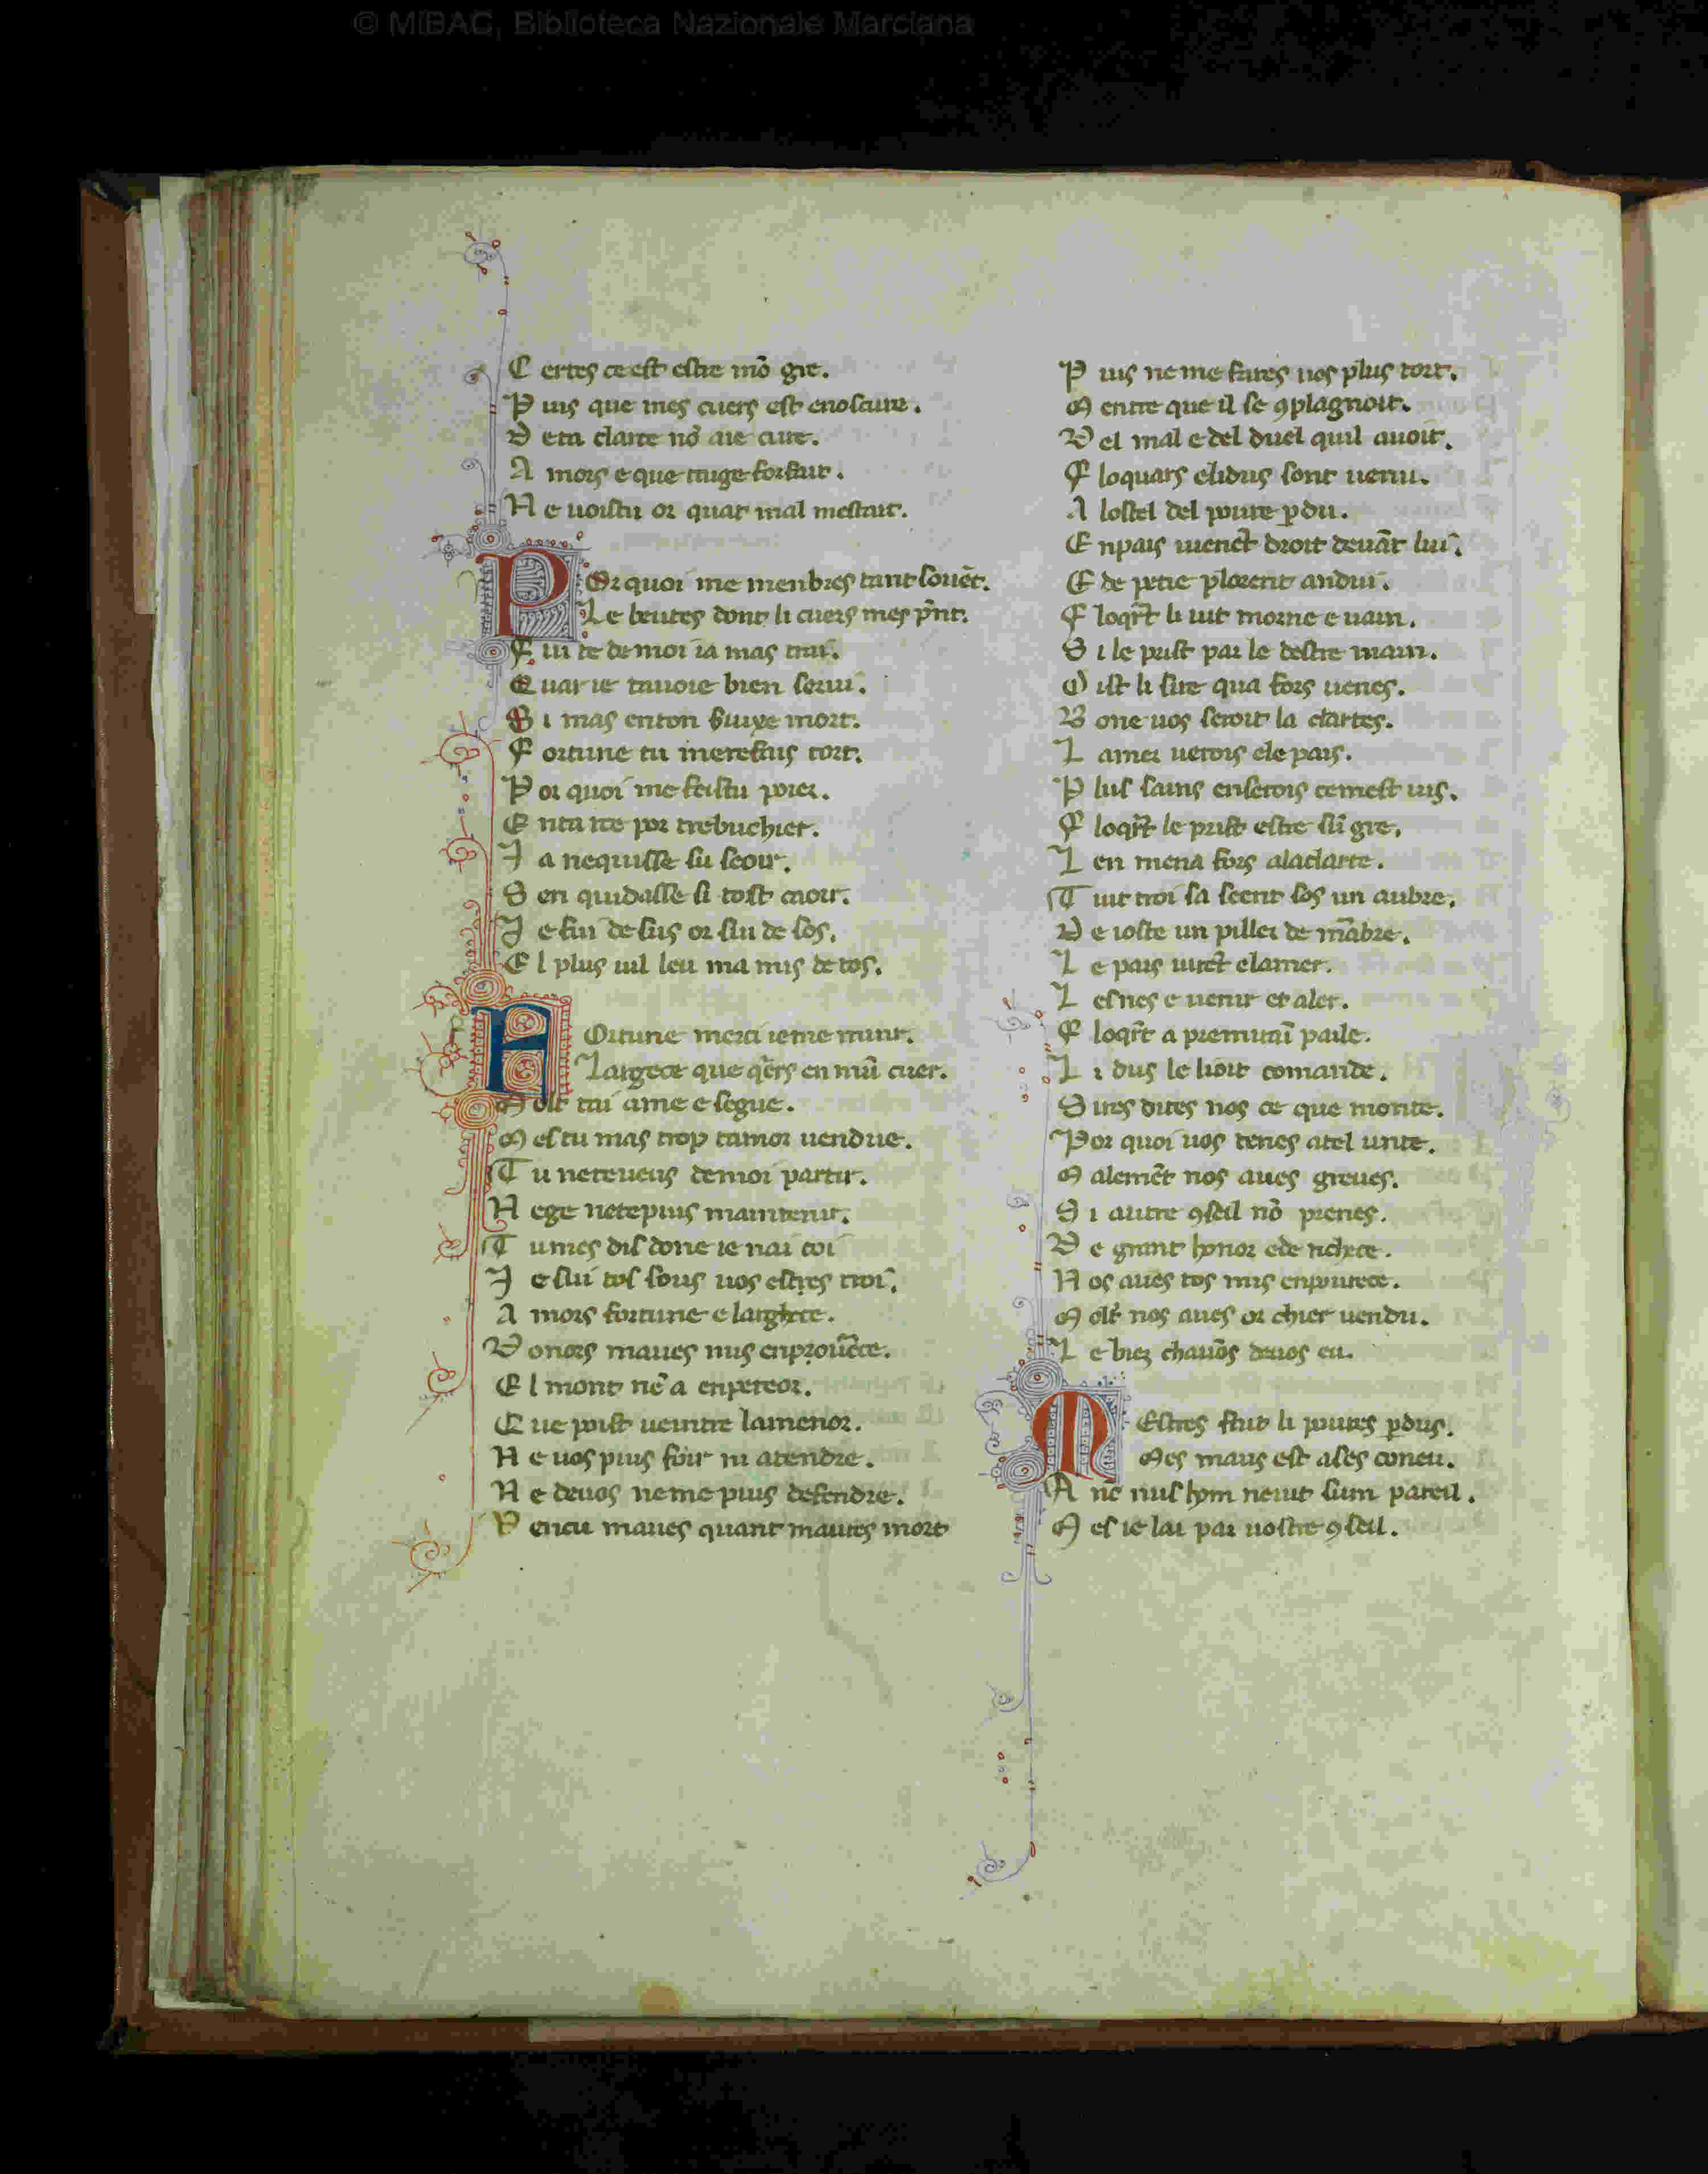 © MiBAC, Biblioteca Nazionale Marciana
C ertes ce est estre mō gre.
P uis que mes cuers est enoscure.
D eta clarte nō aie cure.
A mors e que tauge forfait.
N e uoistu or quar mal mestait.
P Or quoi me menbres tant souēt.
Le beutes dont li cuers mes
F ui te de moi ia mas trai.
Q uar ie tauoie bien serui.
S i mas enton seruise mort.
F ortune tu merefais tort.
P or quoi me feistu poier.
E nta roe por trebuchier.
J a nequisse su seoir.
S en quidasse si tost caoir.
J e fui de sus or sui de sos.
E l plus uil leu ma mis de tos.
F Ortune merci ie me muir.
Largece que qers en mū cuer.
M olt tai ame e segue.
M es tu mas trop tamor uendue.
T u neteueus demoi partir.
N ege netepuis maintenir.
T umes dis done ie nai coi
J e sui tos sous uos estres troi.
A mors fortune e largece.
D onors maues mis enprouēce.
E l mont nē a enpereor.
Q ue poist ueintre lamenor.
N e uos puis foir ni atendre.
N e deuos neme puis defendre.
V encu maues quant maures mort
P uis ne me faires uos plus tort.
M entre que il se 9plagnoit.
D el mal e del duel quil auoit.
F loquars elidus sont uenu.
A lostel del poure pdu.
E npais uienēt droit deuāt lui.
E de petie plorent andui.
F loqrt li uit morne e uain.
S i le prist par le destre main.
D ist li sire qua fors uenes.
B one uos seroit la clartes.
L amer uerois ele pais.
P lus sains enserois cemest uis.
F loqrt le prist estre sū gre.
L en mena fors alaclarte.
T uit troi sa seent sos un aubre.
D e ioste un piller de mābre.
L e pais uirēt elamer.
L es nes e uenir et aler.
F loqrt a premerai parle.
L i dus le lioit comande.
S ires dites nos ce que monte.
P or quoi uos tenes atel unte.
M alemēt nos aues greues.
S i autre 9seil nō prenes.
D e grant honor ede richece.
N os aues tos mis enpourece.
M olt nos aues or chier uendu.
L e biez chauōs deuos eu.
M Estres fait li poures pdus.
Mes maus est ases coneu.
A nc nus hom neuit sum pareil.
M es ie lai par uostre 9seil.